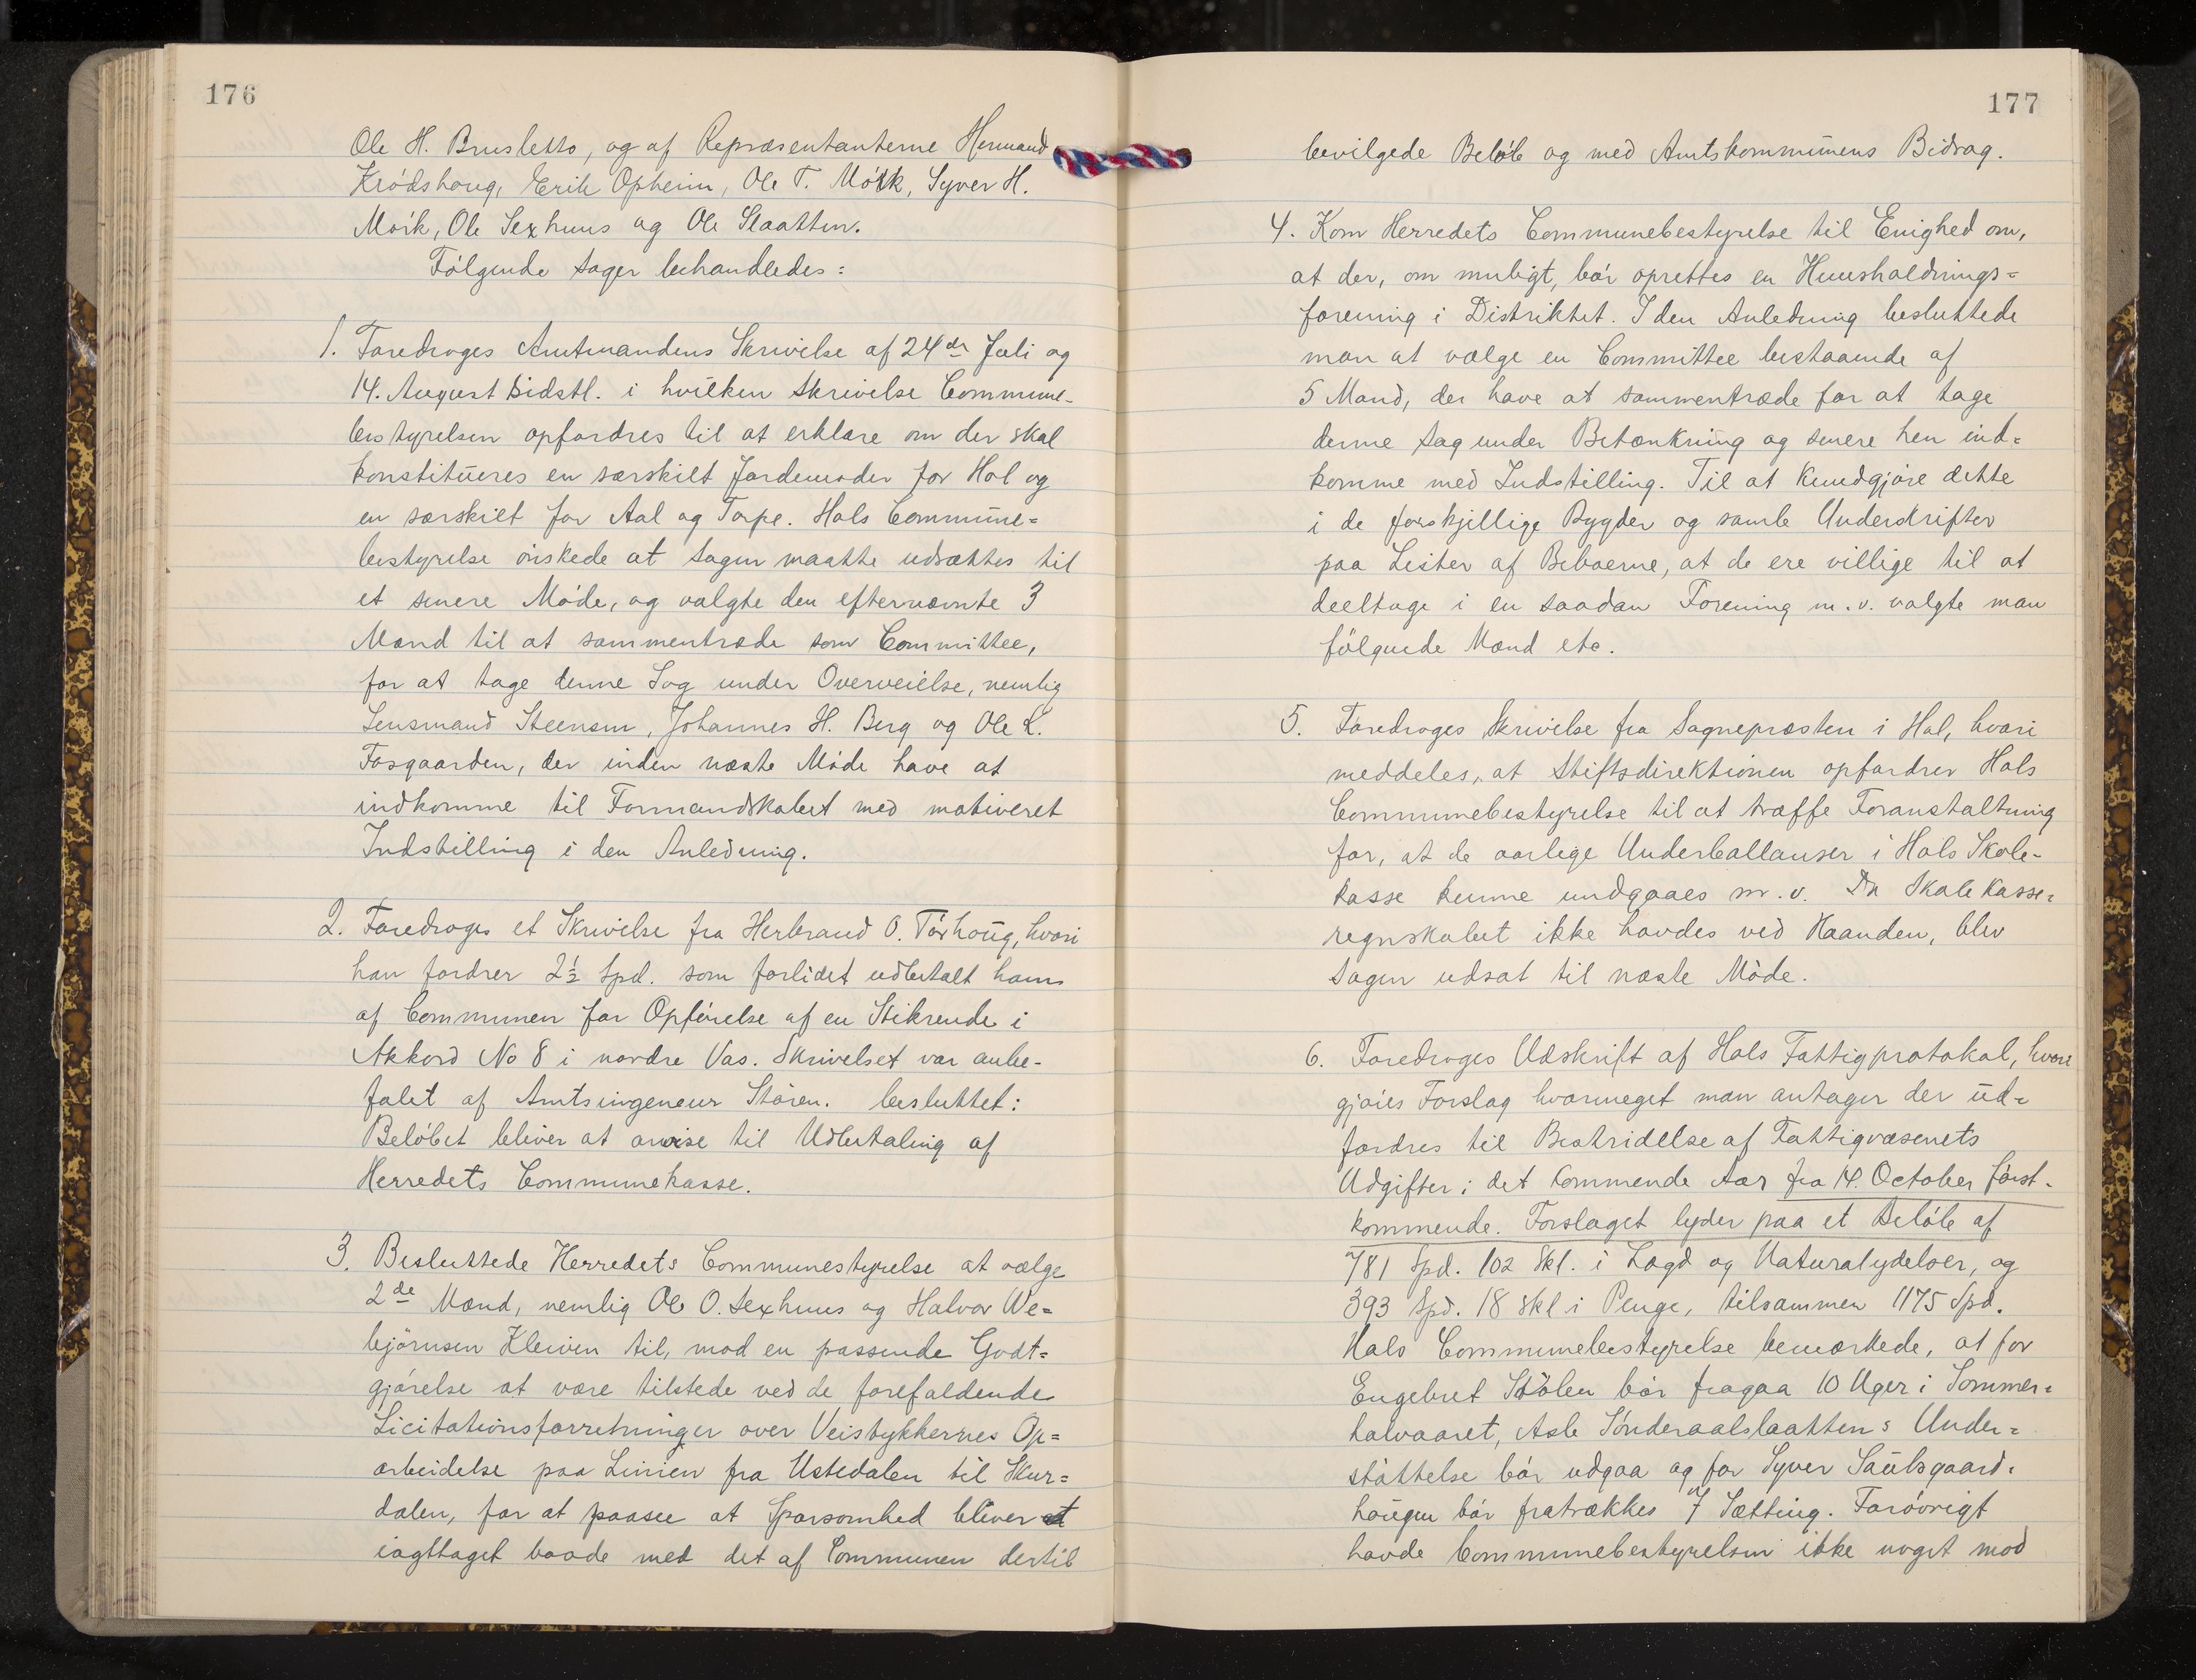 176
Ole H. Brusletto, og af Repræsentanterne Hermand
Krödshoug, Erik Opheim, Ole T. Mörk, Syver H.
Mörk, Ole Sexhuus og Ole Slaatten.
Fölgende Sager behandledes:
1. Foredroges Amtmandens Skrivelse af 24de Juli og
14. August sidstl. i hvilken Skrivelse Commune-
bestyrelsen opfordres til at erklære om der skal
konstitueres en særskilt Jordemoder for Hol og
en særskilt for Aal og Torpe. Hols Commune=
bestyrelse önskede at Sagen maatte udsættes til
et senere Möde, og valgte den efternævnte 3
Mænd til at sammentræde som Committee,
for at tage denne Sag under Overveielse, nemlig
Lensmand Steensen, Johannes H. Berg og Ole L.
Fosgaarden, der inden næste Möde have at
indkomme til Formandskabet med motiveret
Indstilling i den Anledning.
2. Foredroges et Skrivelse fra Herbrand O. Törhoug, hvori
han fordrer 2½ Spd. som forlidet udbetalt ham
af Communen for Opförelse af en Stikrende i
Akkord No 8 i nordre Vas. Skrivelset var anbe-
falet af Amtsingeneur Stören. besluttet:
Belöbet bliver at anvise til Udbetaling af
Herredets Communekasse.
3. Besluttede Herredets Communestyrelse at vælge
2de Mænd, nemlig Ole O. Sexhuus og Halvor We=
björnsen Kleiven til, mod en passende Godt=
gjörelse at være tilstede ved de forefaldende
Licitationsforretninger over Veistykkernes Op=
arbeidelse paa Linien fra Ustedalen til Skur=
dalen, for at paasee at Sparsomhed bliver
iagttaget baade med det af Communen dertil
177
bevilgede Belöb og med Amtskommunens Bidrag.
4. Kom Herredets Communebestyrelse til Enighed om,
at der, om muligt, bör oprettes en Huusholdnings=
forening i Distriktet. I den Anledning besluttede
man at vælge en Committee bestaaende af
5 Mand, der have at sammentræde for at tage
denne Sag under Betænkning og senere hen ind=
komme med Indstilling. Til at kundgjöre dette
i de forskjellige Bygder og samle Underskrifter
paa Lister af Beboerne, at de ere villige til at
deeltage i en saadan Forening m.v. valgte man
fölgende Mænd etc.
5. Foredroges Skrivelse fra Sognepræsten i Hol, hvori
meddeles, at Stiftsdirektionen opfordrer Hols
Communebestyrelse til at træffe Foranstaltning
for, at de aarlige Underballanser i Hols Skole-
kasse kunne undgaaes m.v. Da Skolekasse=
regnskabet ikke havdes ved Haanden, blev
Sagen udsat til næste Möde.
6. Foredroges Udskrift af Hols Fattigprotokol, hvori
gjöres Forslag hvormeget man antager der ud=
fordres til Bestridelse af Fattigvæsenets
Udgifter i det kommende Aar fra 14. October först-
kommende. Forslaget lyder paa et Belöb af
781 Spd. 102 Skl. i Lægd og Naturalydelser, og
393 Spd. 18 Skl i Penge, tilsammen 1175 Spd.
Hols Communebestyrelse bemærkede, at for
Engebret Stölen bör fragaa 10 Uger i Sommer=
halvaaret, Asle Sönderaalslaattens Under=
stöttelse bör udgaa og for Syver Saulsgaard=
hougen bör fratrækkes 7 Sætting. Forövrigt
havde Communebestyrelsen ikke noget mod